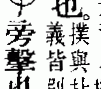 也。
撲與
義皆
旁擊也